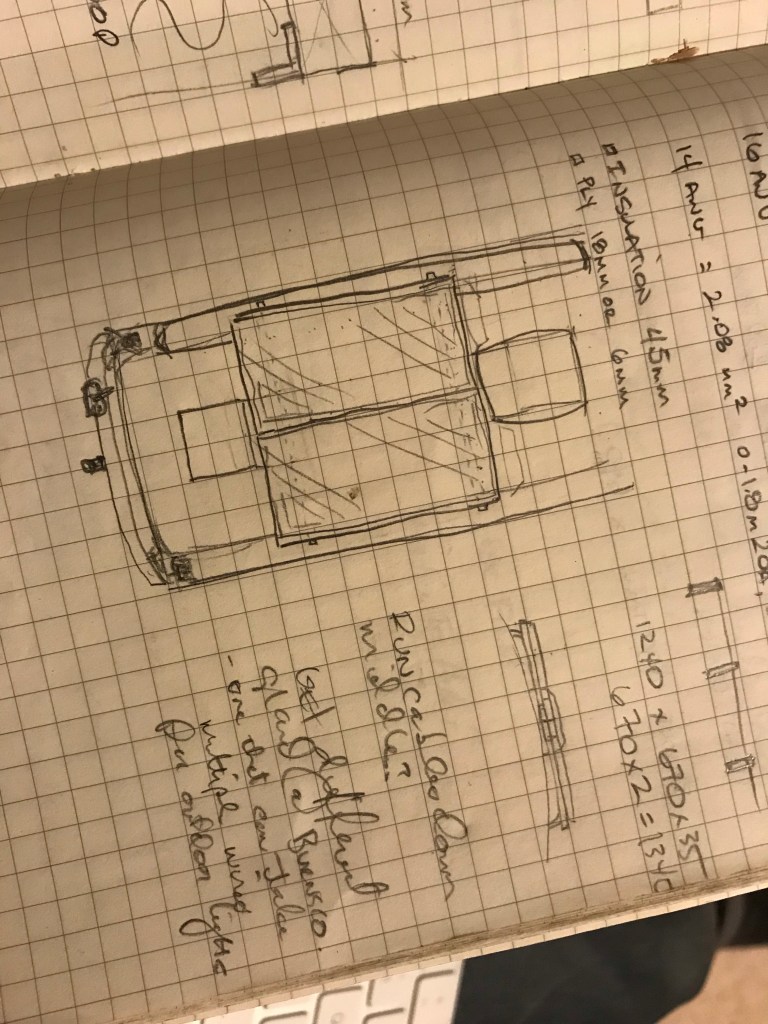 16 AW
14 AWG = 2.08 mm2 0-1.8m 20A,
▫ INSULATION 45mm
▫ PLY 18mm or 6mm
1240 x 670 x 35
670 x 2 = 1340
Run cables down
middle?
Get different
gland (a
- one that can take
multiple wires
for outdoor lights
m